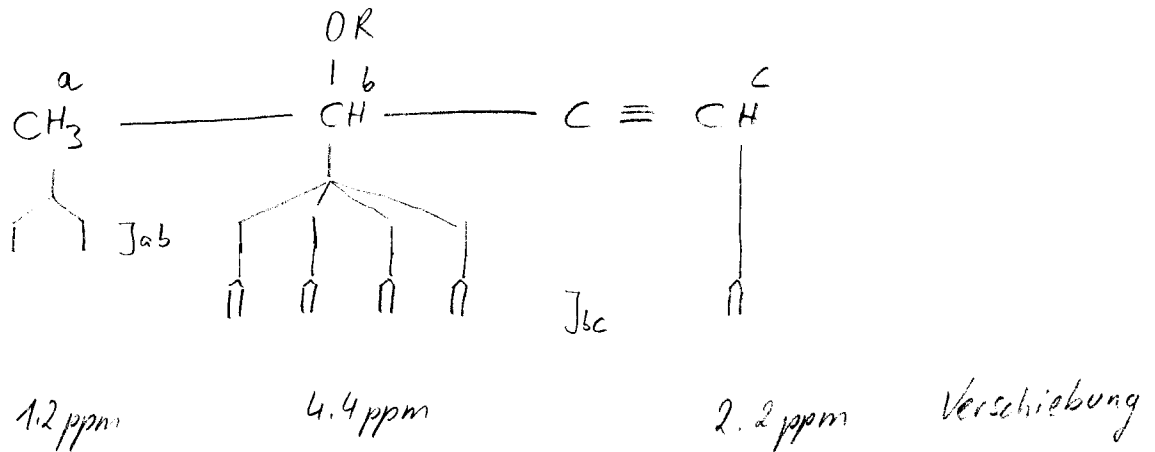 OR
a b c
CH3 — CH — C ≡ CH
Jab
Jbc
1.2 ppm 4.4 ppm 2.2 ppm Verschiebung